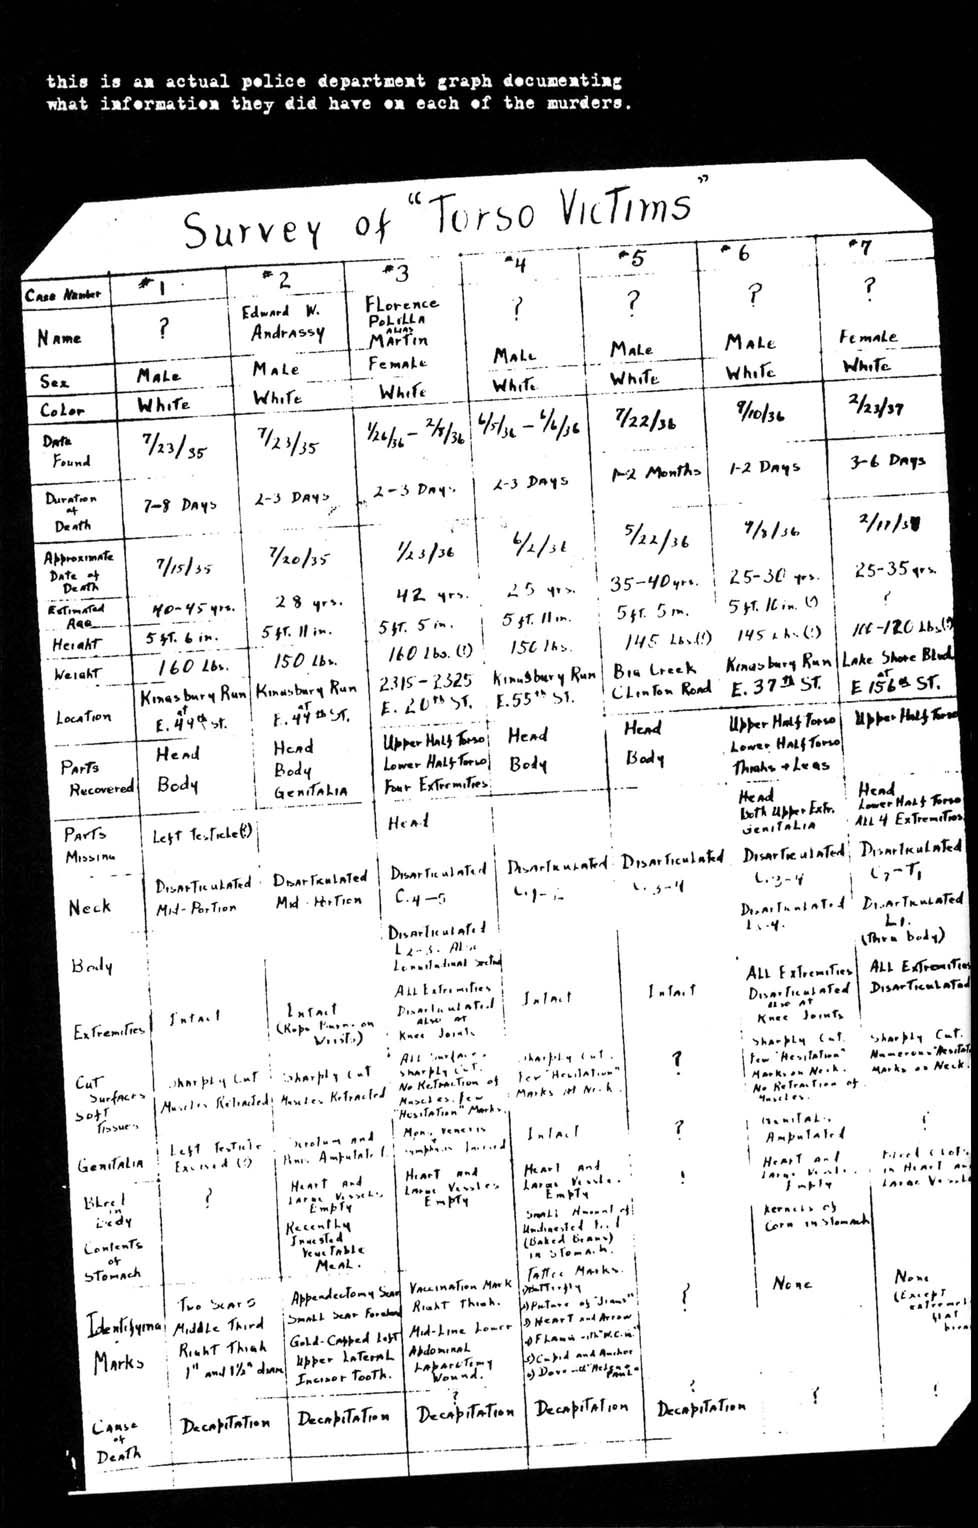 this is an actual police department graph documenting
what information they did have on each of the murders.
Survey of "Torso Victims"
Case Number #1 #2 #3 #4 #5 #6 #7
Name ? Edward W. Andrassy Florence Polilla alias Martin ? ? ? ?
Sex Male Male Female Male Male Male Female
Color White White White White White White White
Date Found 7/23/35 7/23/35 1/26/36 – 2/7/36 6/5/36 – 6/6/36 7/22/36 9/10/36 2/23/37
Duration of Death 7–8 Days 2–3 Days 2–3 Days 2–3 Days 1–2 Months 1–2 Days 3–6 Days
Approximate Date of Death 7/15/35 7/20/35 1/23/36 6/2/36 5/22/36 9/8/36 2/17/37
Estimated Age 40–45 yrs. 28 yrs. 42 yrs. 25 yrs. 35–40 yrs. 25–30 yrs. 25–35 yrs.
Height 5 ft. 6 in. 5 ft. 11 in. 5 ft. 5 in. 5 ft. 11 in. 5 ft. 5 in. 5 ft. 10 in. (?) ?
Weight 160 Lbs. 150 Lbs. 160 Lbs. (?) 150 lbs. 145 Lbs. (?) 145 Lbs. (?) 100–120 Lbs. (?)
Location Kingsbury Run at E. 49th St. Kingsbury Run at E. 49th St. 2315–2325 E. 20th St. Kingsbury Run E. 55th St. Big Creek Clinton Road Kingsbury Run E. 37th St. Lake Shore Blvd at E 156th St.
Parts Recovered Head Body Head Body Genitalia Upper Half Torso Lower Half Torso Four Extremities Head Body Head Body Upper Half Torso Lower Half Torso Thighs + Legs Upper Half Torso
Parts Missing Left Testicle (?) Head Head Both Upper Extr. Genitalia Head Lower Half Torso All 4 Extremities
Neck Disarticulated Mid-Portion Disarticulated Mid-Portion Disarticulated C.4–5 Disarticulated Disarticulated C.3–4 Disarticulated C.3–4 Disarticulated C7–T1
Body Disarticulated L2–3. Also Longitudinal Section Disarticulated Disarticulated L1. (Thru body)
Extremities Intact Intact (Rope Burn on Wrists) All Extremities Disarticulated also at Knee Joints Intact Intact All Extremities Disarticulated also at Knee Joints All Extremities Disarticulated
Cut Surfaces Soft Tissues Sharply Cut Muscles Retracted Sharply Cut Muscles Retracted All Surfaces Sharply Cut. No Retraction of Muscles. Few "Hesitation" Marks. Sharply Cut. Few "Hesitation" Marks on Neck. ? Sharply Cut. Few "Hesitation" Marks on Neck. No Retraction of Muscles. Sharply Cut. Numerous "Hesitat Marks on Neck.
Genitalia Left Testicle Excised (?) Scrotum and Penis Amputated. Intact ? Genitals Amputated ?
Blood in Body ? Heart and Large Vessels Empty Heart and Large Vessels Empty Heart and Large Vessels Empty ! Heart and Large Vessels Empty Blood Clots in Heart and Large Vessels
Contents of Stomach Recently Ingested Vegetable Meal. Small Amount of Undigested Food (Baked Beans) in Stomach. Kernels of Corn in Stomach
Identifying Marks Two Scars Middle Third Right Thigh 1" and 1½" diam. Appendectomy Scar Small Scar Forehead Gold-Capped Left Upper Lateral Incisor Tooth. Vaccination Mark Right Thigh. Mid-Line Lower Abdominal Laparotomy Wound. Tattoo Marks. 1) Butterfly 2) Picture of "Jiggs" 3) Heart and Arrow 4) Flags with "W.C.G." 5) Cupid and Anchor 6) Dove with "Helen-Paul" ? None None (Except
Cause of Death Decapitation Decapitation ? Decapitation Decapitation ? Decapitation ? !